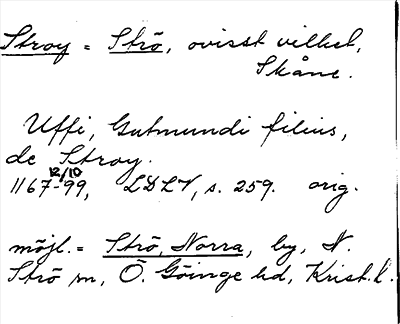 Stroy = Strö, ovisst vilket,
Skåne.
Uffi, Gutmundi filius,
de Stroy.
12/10
1167-99, LDLV, s. 259. orig.
möjl. = Strö, Norra, by, N.
Strö sn, Ö. Göinge hd, Krist. l.